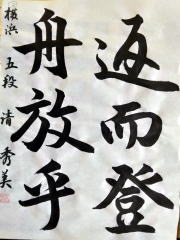 返而登
舟放乎
横浜 五段 清 秀美